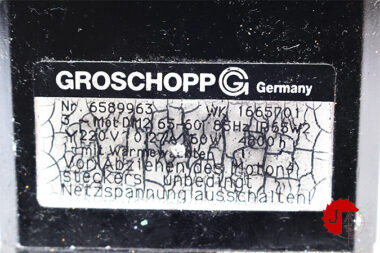 GROSCHOPP G Germany
Nr. 6589963 WK 1665701
3 Mot DM2 65-60 85Hz IP65W2
Y 220 V 60W
mit
Vor Abziehen des Motor
steckers unbedingt
Netzspannung ausschalten!